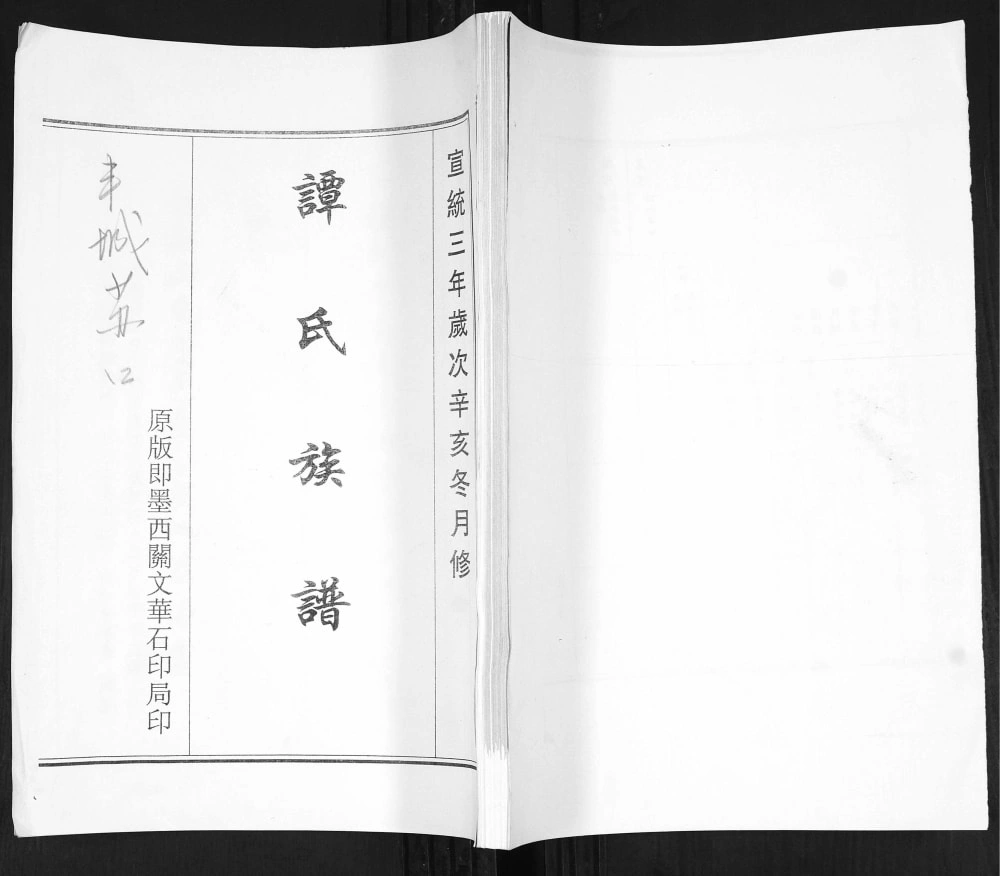 宣統三年歲次辛亥冬月修
譚氏族譜
原版即墨西關文華石印局印
城
口